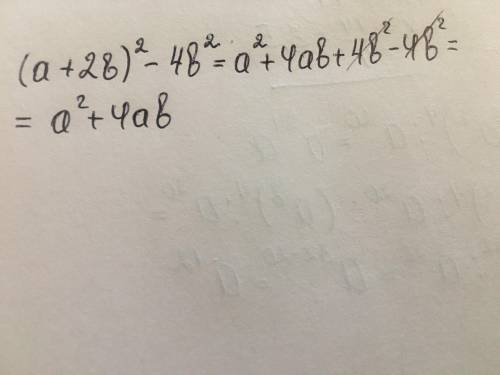 (a+2b)² - 4b² = a² + 4ab + 4b² - 4b² =
= a² + 4ab